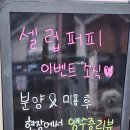 셀럽퍼피
이벤트 소식
분양 & 미용 후
현장에서 영수증리뷰